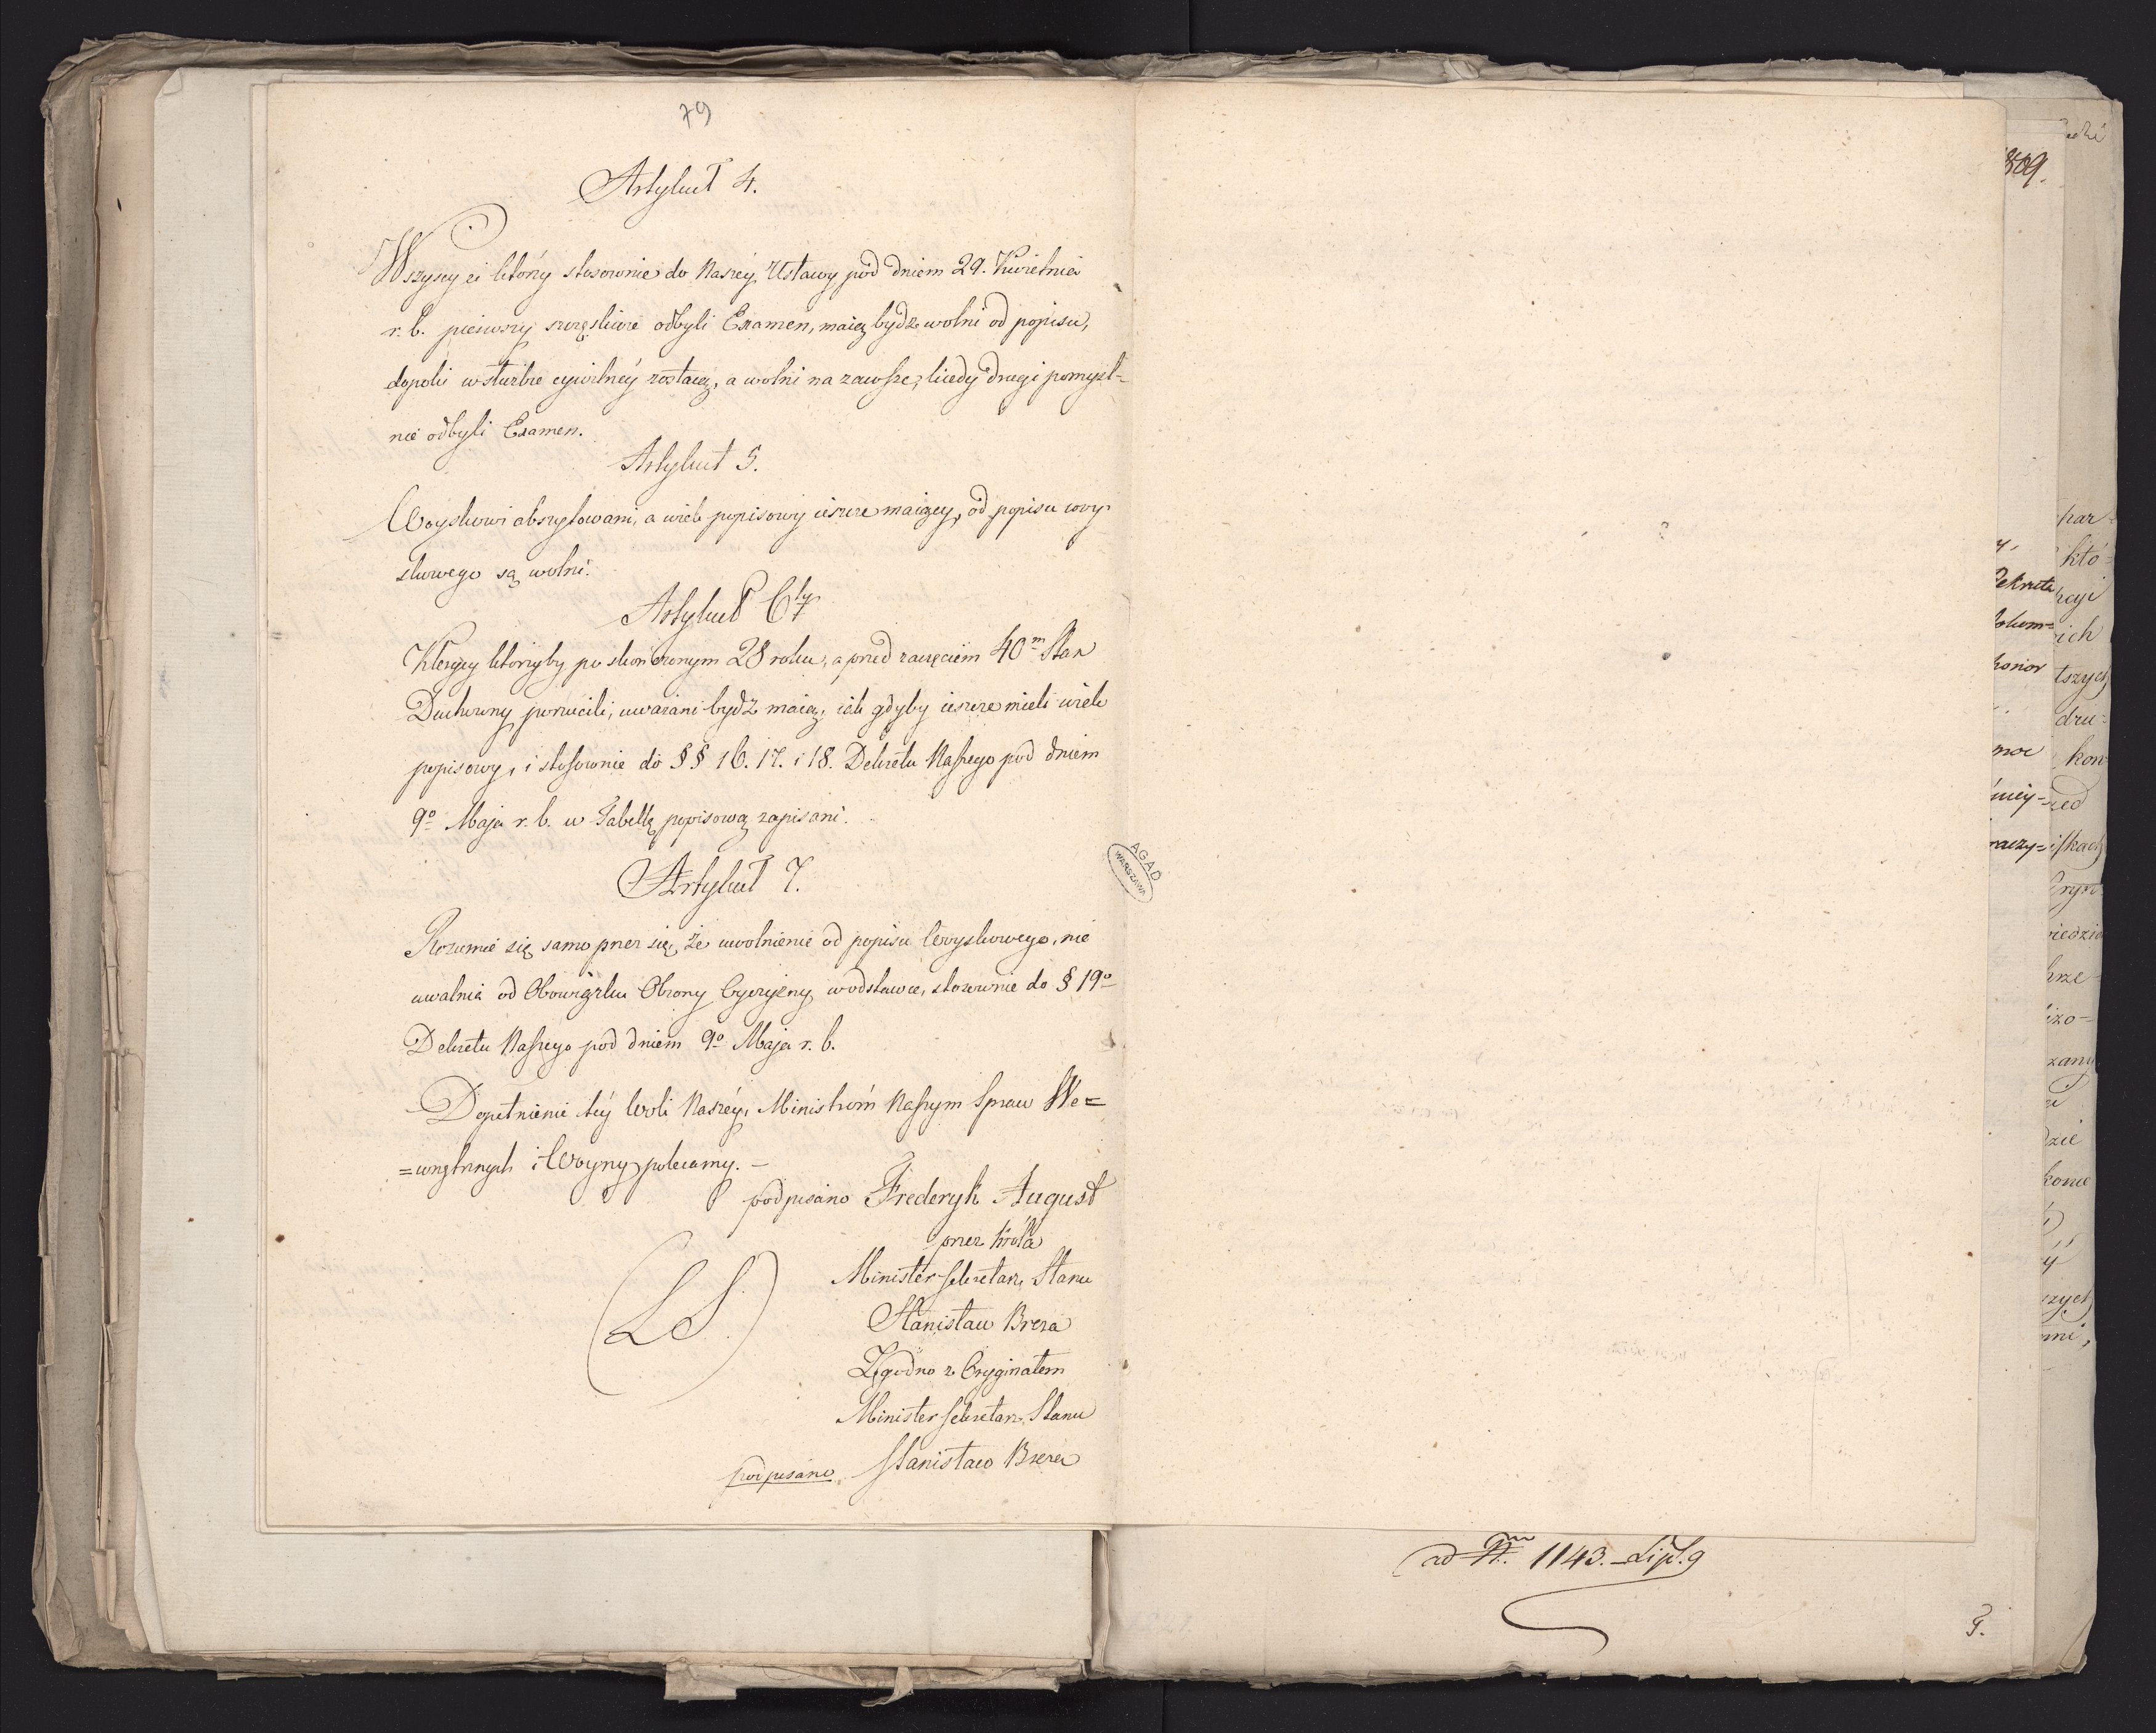 79
Artykuł 4.
Wszyscy ci którzy stosownie do Naszey Ustawy pod dniem 29. Kwietnia
r. b. pierwszy szczęśliwie odbyli Examen, maią bydź wolni od popisu,
dopóki w służbie cywilnéy zostaią, a wolni na zawsze, kiedy drugi pomyśl-
nie odbyli Examen.
Artykuł 5.
Woyskowi abszytowani, a wiek popisowy ieszcze maiący, od popisu woy-
skowego są wolni.
Artykuł 6ty
Klerycy którzyby po skończonym 28 roku, a przed zaczęciem 40m Stan
Duchowny porzucili, uważani bydź maią, iak gdyby ieszcze mieli wiek
popisowy, i stosownie do §§ 16. 17. i 18. Dekretu Naszego pod dniem
9o Maja r. b. w Tabellę popisową zapisani.
Artykuł 7.
Rozumie się samo przez się, że uwolnienie od popisu Woyskowego, nie
uwalnia od Obowiązku Obrony Oyczyzny, w odsławce, stosownie do § 19o
Dekretu Naszego pod dniem 9o Maja r. b.
Dopełnienie téy Woli Naszéy, Ministróm Naszym Spraw We=
=wnętrznych i Woyny polecamy. –
podpisano Frederyk August
przez Króla
Minister Sekretarz Stanu
Stanisław Breza
(L S.)
Zgodno z Oryginałem
Minister Sekretarz Stanu
podpisano Stanisław Breza
AGAD
WARSZAWA
ad Nm 1143. Lip. 9
809.
Dekretu
honor
moc
par=
któ=
ich
tszych
dru=
kon
iedzie
zany
zie